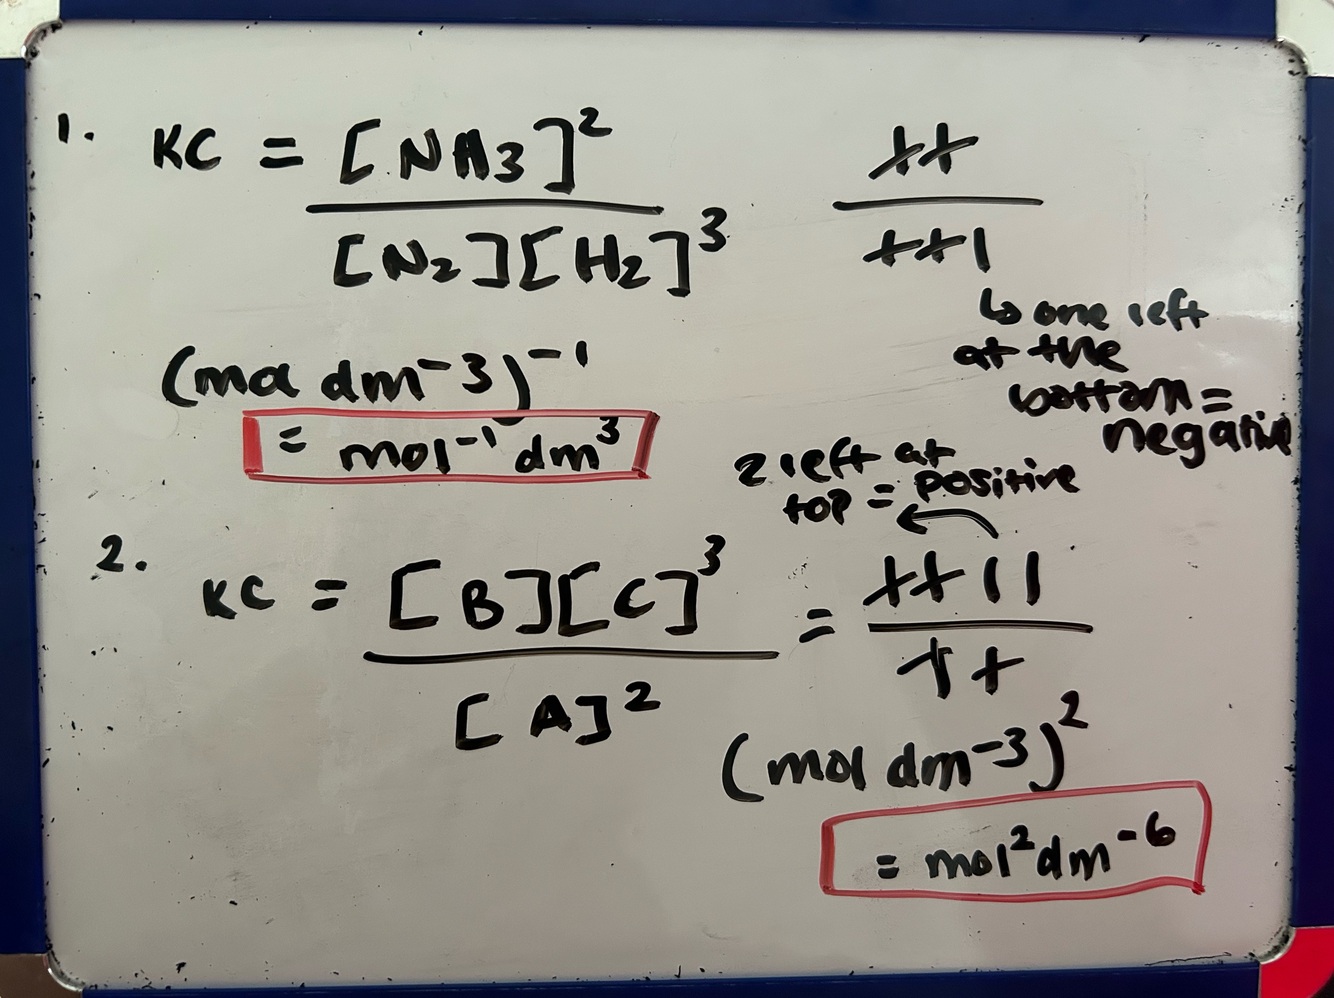 1. KC = [NH3]² / [N₂][H₂]³
++ / ++1
↳ one left
at the
bottom =
negative
(mol dm⁻³)⁻¹
= mol⁻¹ dm³
2 left at
top = positive
2. KC = [B][C]³ / [A]² = ++11 / ++
(mol dm⁻³)²
= mol²dm⁻⁶